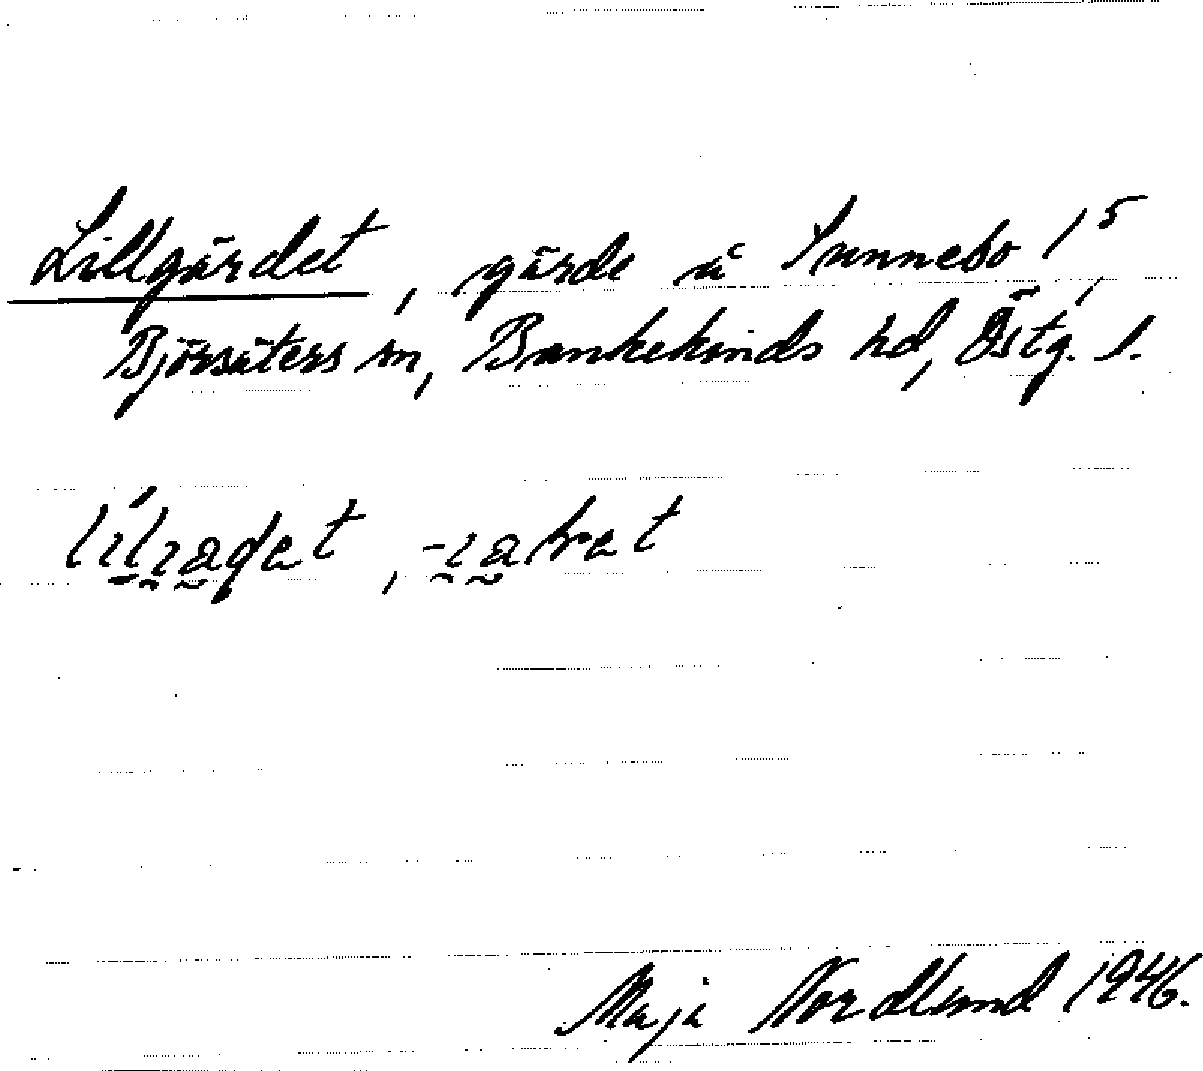 Lillgärdet, gärde å Sunnebo 1⁵
Björsäters sn, Bankekinds hd, Östg. l.
Maja Nordlund 1946.